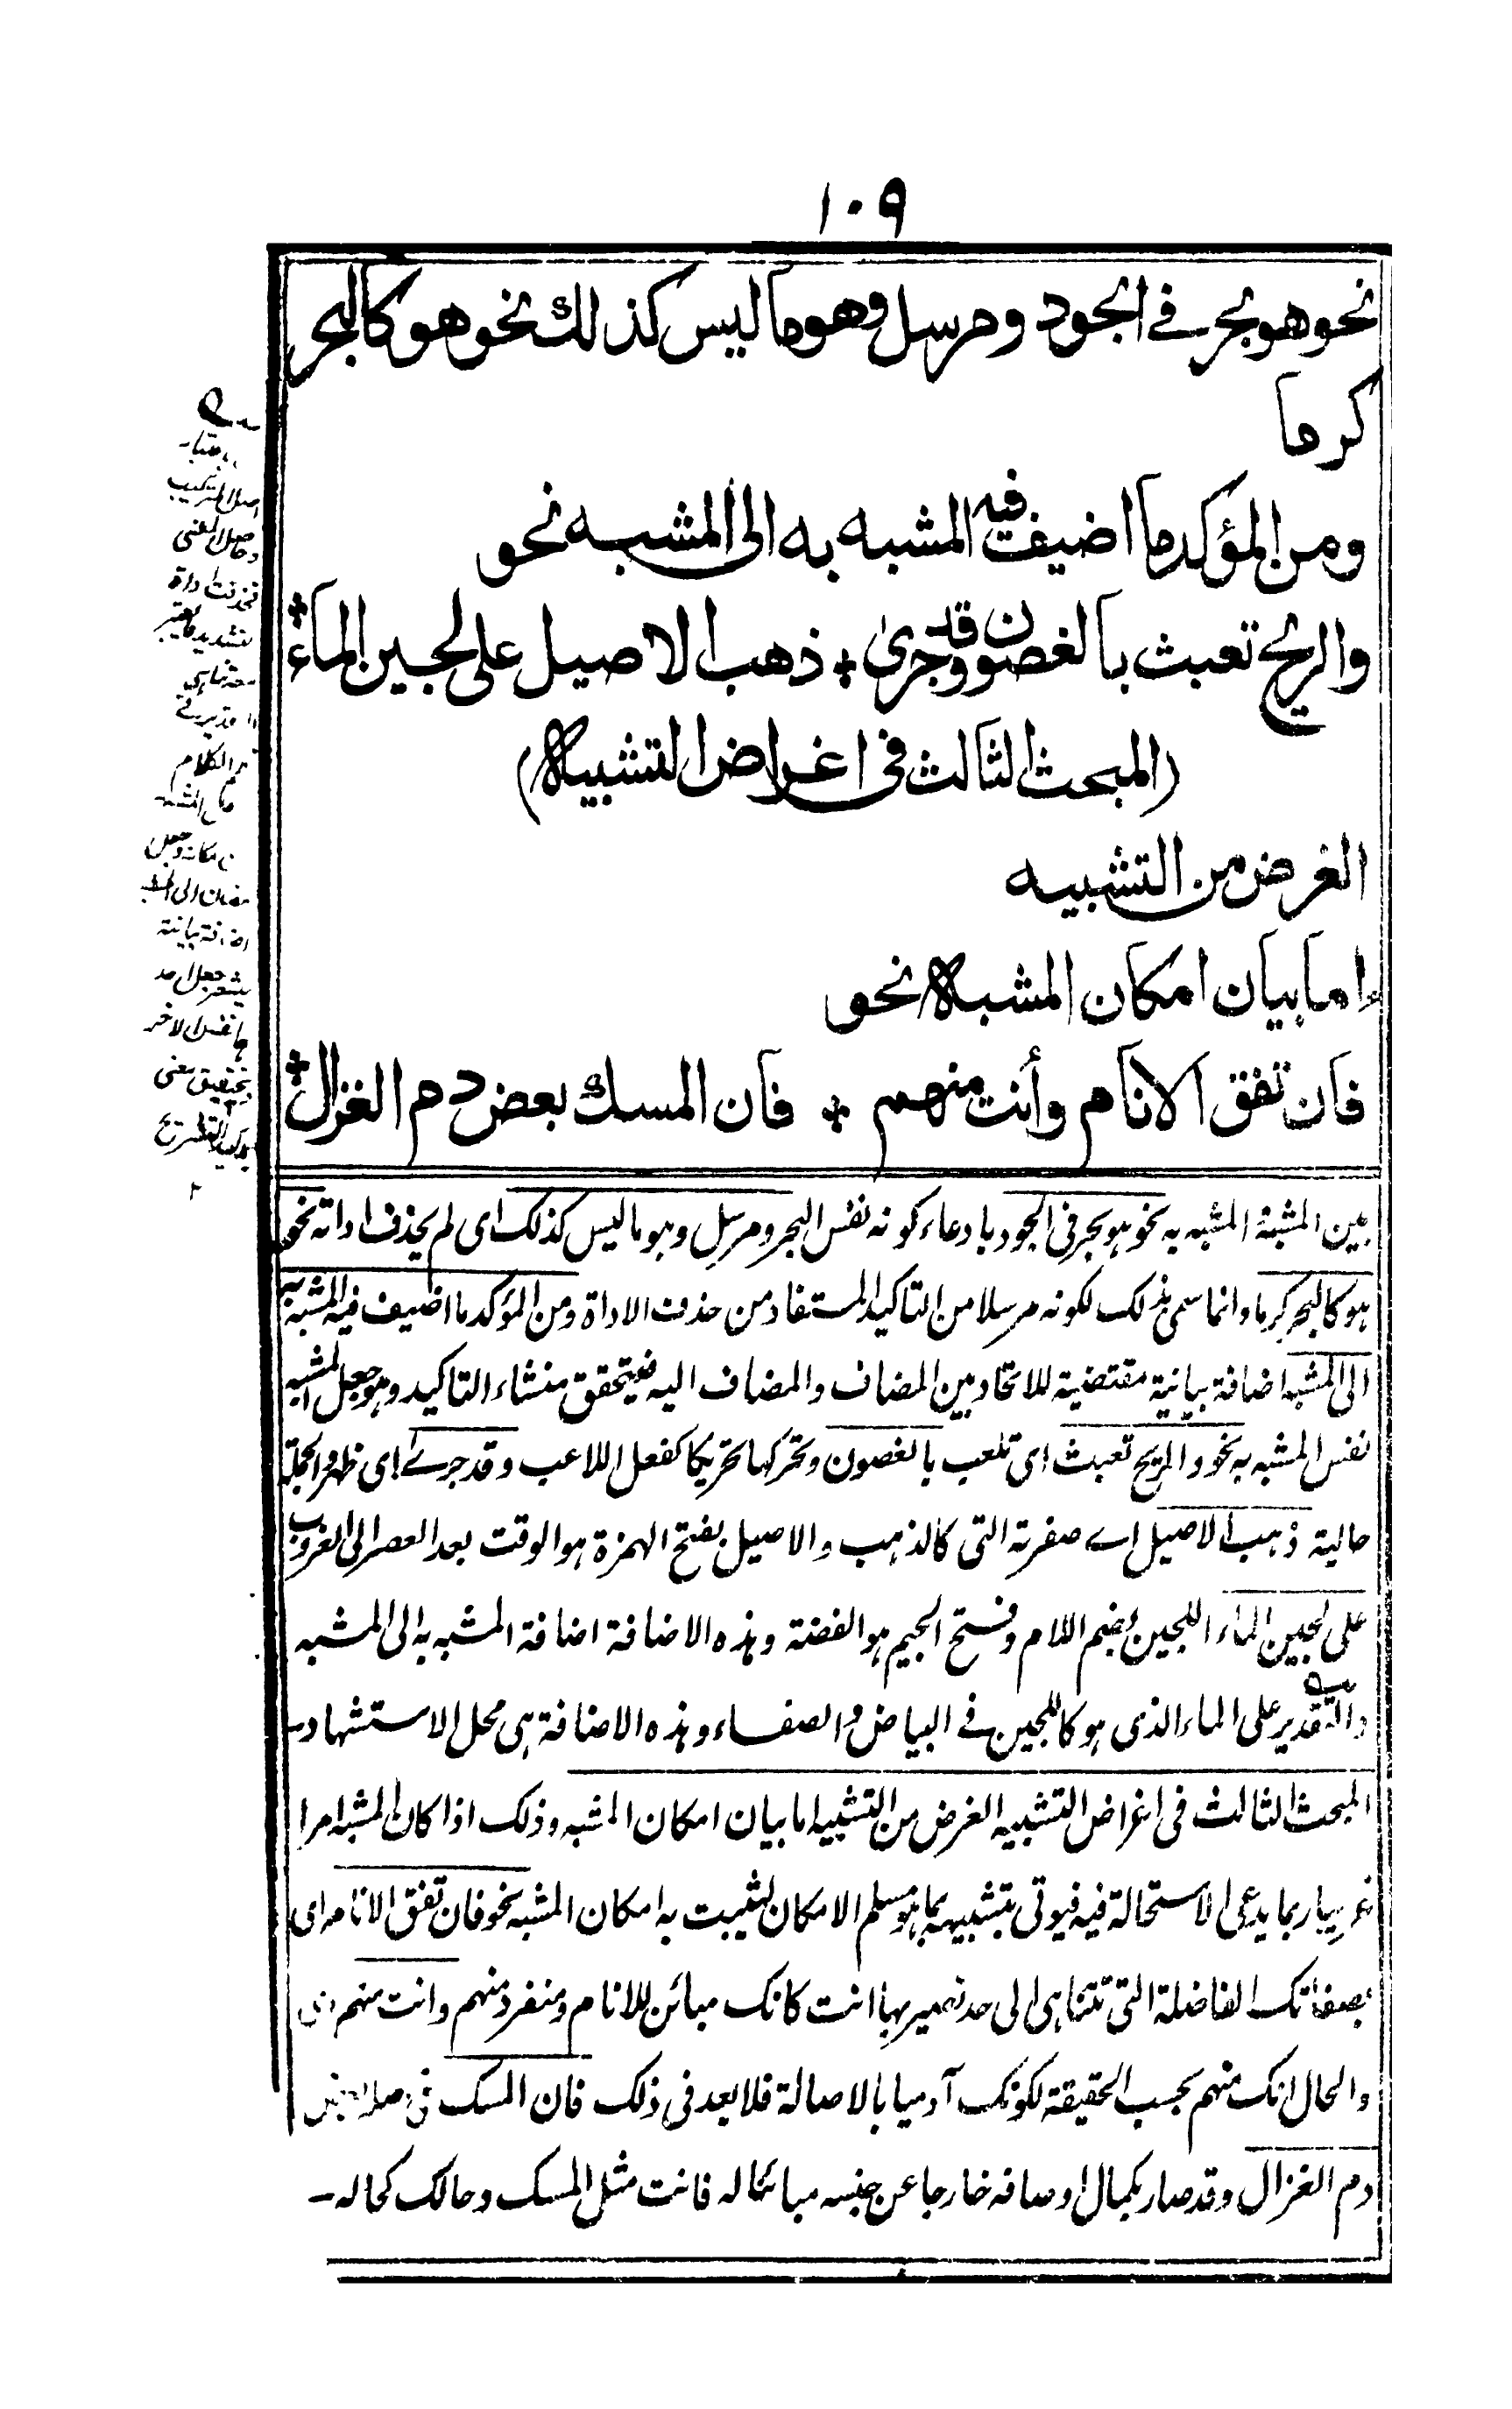 ١٠٩
نحو هو بحر في الجود ومرسل وهو ما ليس كذلك نحو هو كالبحر
كرما
ومن المؤكد ما اضيف فيه المشبه به الى المشبه نحو
والريح تعبث بالغصون وقد جرى ٭ ذهب الاصيل على لجين الماء ٭
(المبحث الثالث في اغراض التشبيه)
الغرض من التشبيه
اما بيان امكان المشبه نحو
فان تفق الانام وأنت منهم ٭ فان المسك بعض دم الغزال ٭
بين المشبه والمشبه به نحو هو بحر في الجود بادعاء كونه نفس البحر ومرسل وهو ما ليس كذلك اى لم يحذف اداته نحو
هو كالبحر كرما وانما سمى بذلك لكونه مرسلا من التاكيد المستفاد من حذف الاداة ومن المؤكد ما اضيف فيه المشبه به
الى المشبه اضافة بيانية مقتضية للاتحاد بين المضاف والمضاف اليه فيتحقق منشاء التاكيد وهو جعل المشبه
نفس المشبه به نحو والريح تعبث اى تلعب بالغصون وتحركها تحريكا كفعل اللاعب وقد جرى اى ظهر والجملة
حالية ذهب الاصيل اے صفرته التى كالذهب والاصيل بفتح الهمزة هو الوقت بعد العصر الى الغروب
على لجين الماء اللجين بضم اللام وفتح الجيم هو الفضة وهذه الاضافة اضافة المشبه به الى المشبه
والتقدير على الماء الذى هو كاللجين في البياض والصفاء وهذه الاضافة هى محل الاستشهاد
المبحث الثالث فى اغراض التشبيه الغرض من التشبيه اما بيان امكان المشبه وذلك اذا كان المشبه امرا
غريبا ربما يدعى الاستحالة فيه فيوتى بتشبيهه بما هو مسلم الامكان ليثبت به امكان المشبه نحو فان تفق الانام اى
بصفاتك الفاضلة التى تتناهى الى حد تصير بها انت كانك مبائن للانام ومنفرد منهم وانت منهم اى
والحال انك منهم بحسب الحقيقة لكونك آدميا بالاصالة فلا بعد فى ذلك فان المسك فى اصله بعض
دم الغزال وقد صار بكمال اوصافه خارجا عن جنسه مبائنا له فانت مثل المسك وحالك كحاله -
اصل التركيب
وحاصل المعنى
الكلام
اضافة بيانية